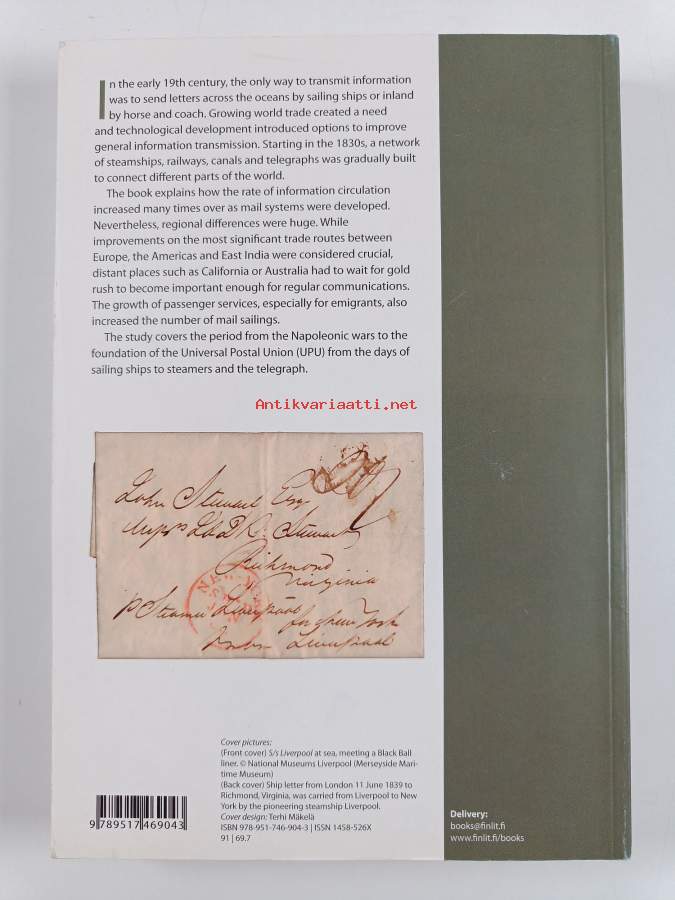 In the early 19th century, the only way to transmit information
was to send letters across the oceans by sailing ships or inland
by horse and coach. Growing world trade created a need
and technological development introduced options to improve
general information transmission. Starting in the 1830s, a network
of steamships, railways, canals and telegraphs was gradually built
to connect different parts of the world.
The book explains how the rate of information circulation
increased many times over as mail systems were developed.
Nevertheless, regional differences were huge. While
improvements on the most significant trade routes between
Europe, the Americas and East India were considered crucial,
distant places such as California or Australia had to wait for gold
rush to become important enough for regular communications.
The growth of passenger services, especially for emigrants, also
increased the number of mail sailings.
The study covers the period from the Napoleonic wars to the
foundation of the Universal Postal Union (UPU) from the days of
sailing ships to steamers and the telegraph.
Antikvariaatti.net
John Stewart Esq
Stewart
Richmond
Virginia
p Steamer Liverpool for New York
Liverpool
Cover pictures:
(Front cover) S/s Liverpool at sea, meeting a Black Ball
liner. © National Museums Liverpool (Merseyside Mari-
time Museum)
(Back cover) Ship letter from London 11 June 1839 to
Richmond, Virginia, was carried from Liverpool to New
York by the pioneering steamship Liverpool.
Cover design: Terhi Mäkelä
ISBN 978-951-746-904-3 | ISSN 1458-526X
91 | 69.7
9 789517 469043
Delivery:
books@finlit.fi
www.finlit.fi/books